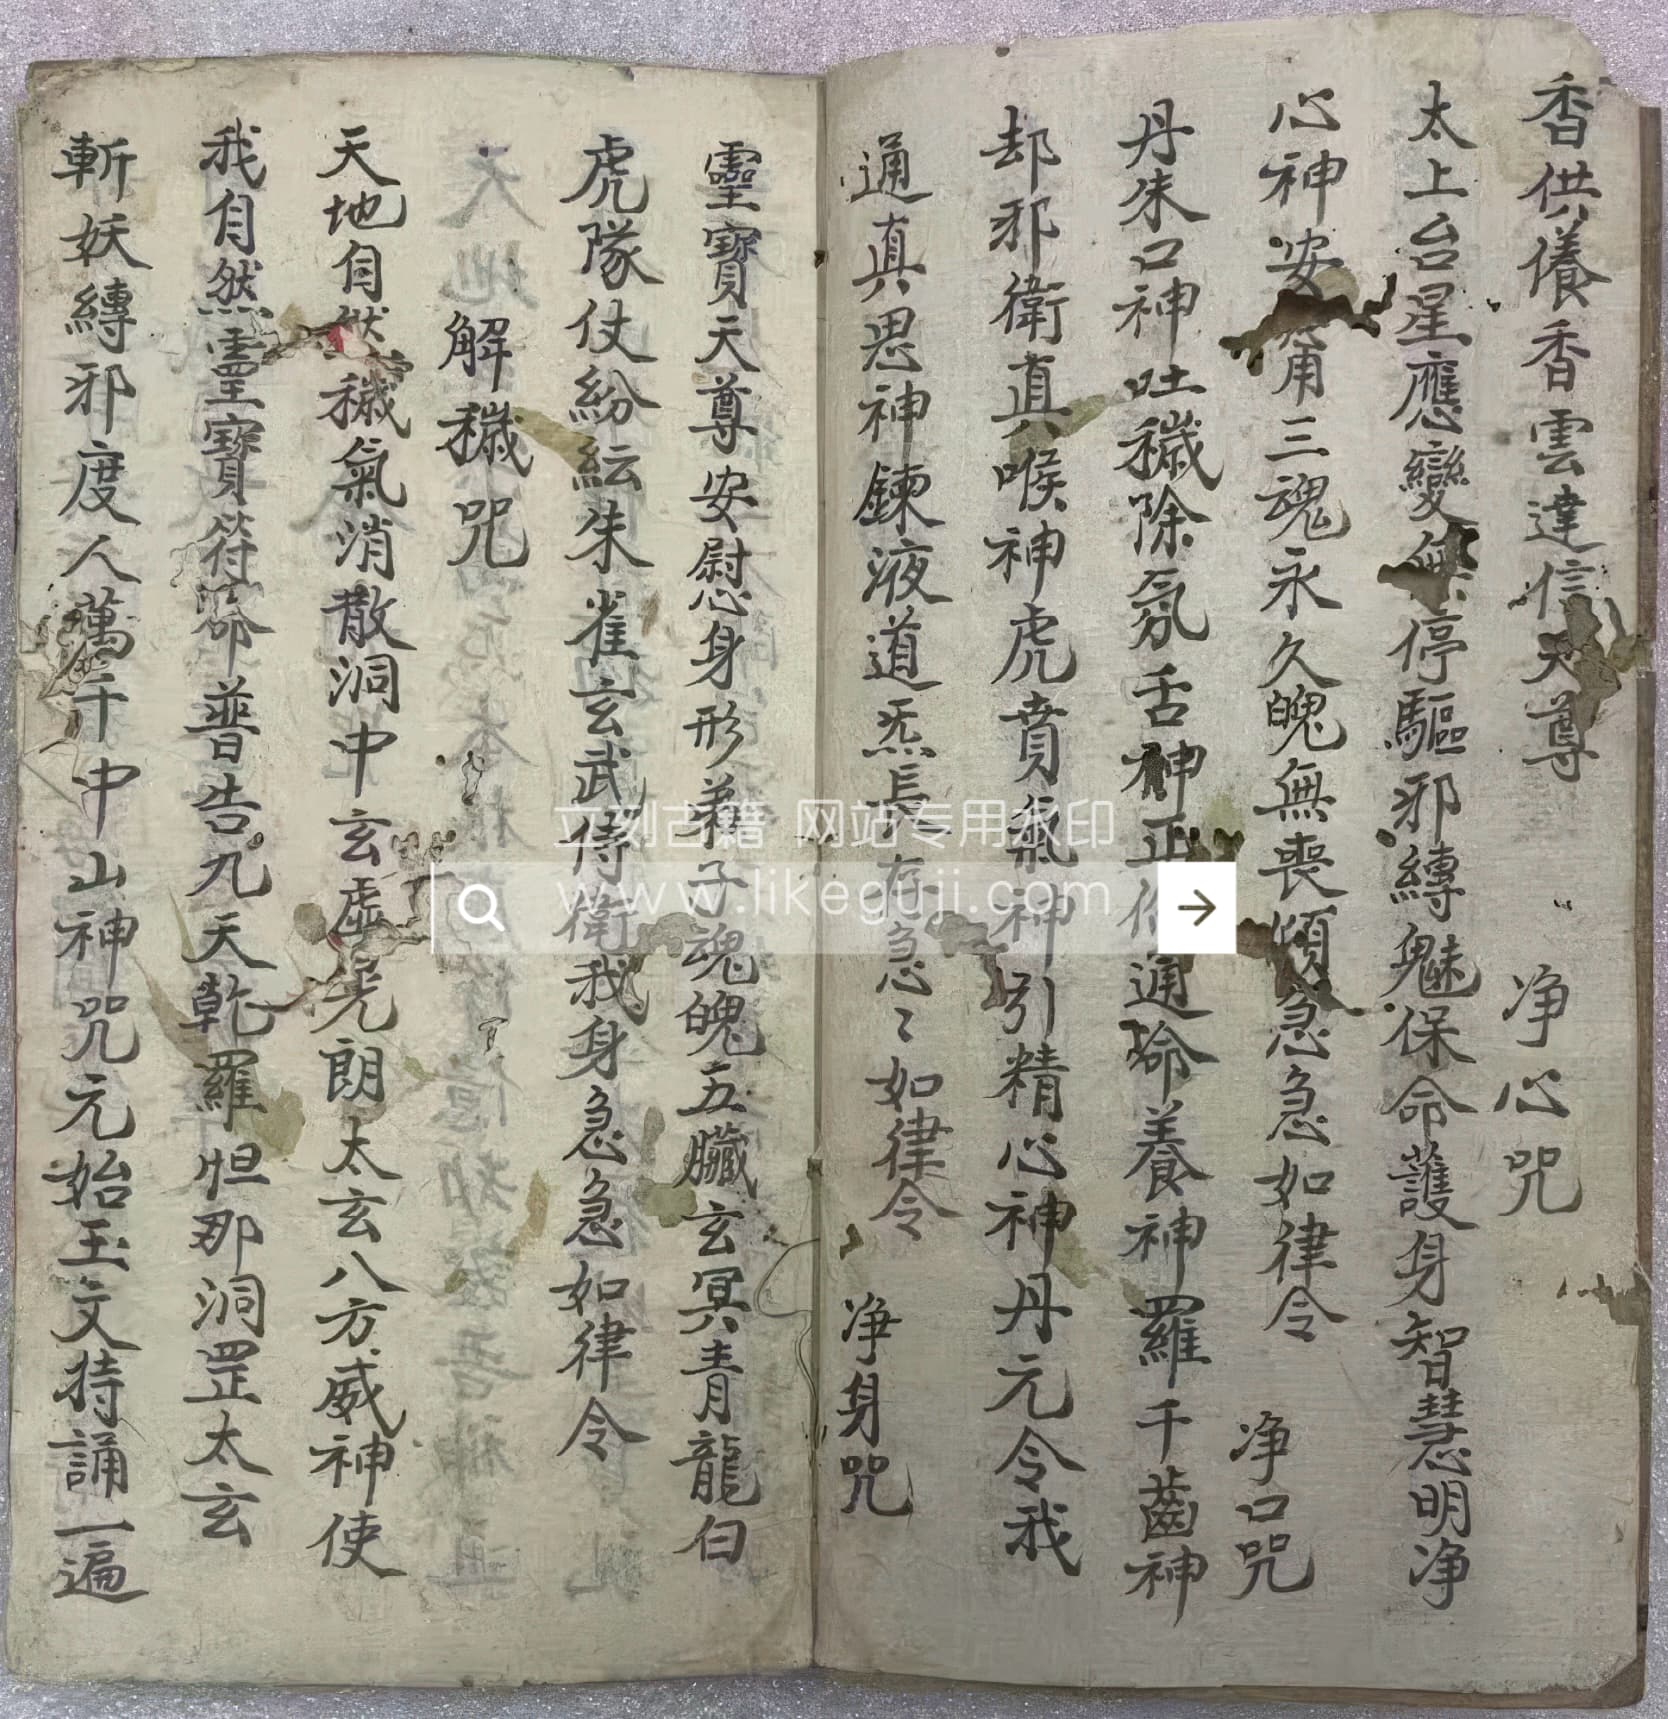 香供儀香雲達信天尊 净心咒
太上台星應變無停驅邪縛魅保命護身智慧明净
心神安三魂永久魄無喪傾急急如律令 净口咒
丹朱口神吐穢除氛舌神正通命養神羅千齒神
却邪衛真喉神虎賁氣神引精心神丹元令我
通真思神鍊液道炁長存急々如律令 净身咒
靈寶天尊安慰身形弟子魂魄五臟玄冥青龍白
虎隊仗紛紜朱雀玄武侍衛我身急急如律令
解穢咒
天地自然穢氣消散洞中玄虛晃朗太玄八方威神使
我自然靈寶符命普告九天乾羅怛那洞罡太玄
斬妖縛邪度人萬千中山神咒元始玉文持誦一遍
立刻古籍 网站专用水印
www.likeguji.com